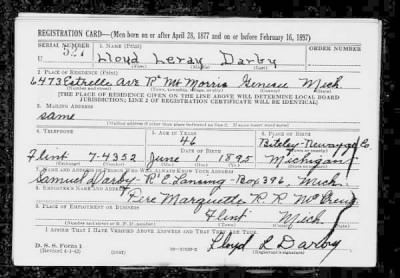 REGISTRATION CARD—(Men born on or after April 28, 1877 and on or before February 16, 1897)
SERIAL NUMBER 1. NAME (Print) ORDER NUMBER
U 527 Lloyd Leray Darby
(First) (Middle) (Last)
2. PLACE OF RESIDENCE (Print)
6473 Estrelle Ave R# Mt Morris Genesee Mich.
(Number and street) (Town, township, village, or city) (County) (State)
[THE PLACE OF RESIDENCE GIVEN ON THE LINE ABOVE WILL DETERMINE LOCAL BOARD
JURISDICTION; LINE 2 OF REGISTRATION CERTIFICATE WILL BE IDENTICAL]
3. MAILING ADDRESS
same
[Mailing address if other than place indicated on line 2. If same insert word same]
4. TELEPHONE 5. AGE IN YEARS 6. PLACE OF BIRTH
46
DATE OF BIRTH
Flint 7-4352 June 1 1895 Michigan
(Exchange) (Number) (Mo.) (Day) (Yr.) (State or country)
7. NAME AND ADDRESS OF PERSON WHO WILL ALWAYS KNOW YOUR ADDRESS
Samuel Darby - R#2 Lansing - Box 396, Mich.
8. EMPLOYER'S NAME AND ADDRESS
Pere Marquette R R
9. PLACE OF EMPLOYMENT OR BUSINESS
Flint Mich
(Number and street or R. F. D. number) (Town) (County) (State)
I AFFIRM THAT I HAVE VERIFIED ABOVE ANSWERS AND THAT THEY ARE TRUE.
D. S. S. Form 1
(Revised 4-1-42) (over) Lloyd L Darby
(Registrant's signature)